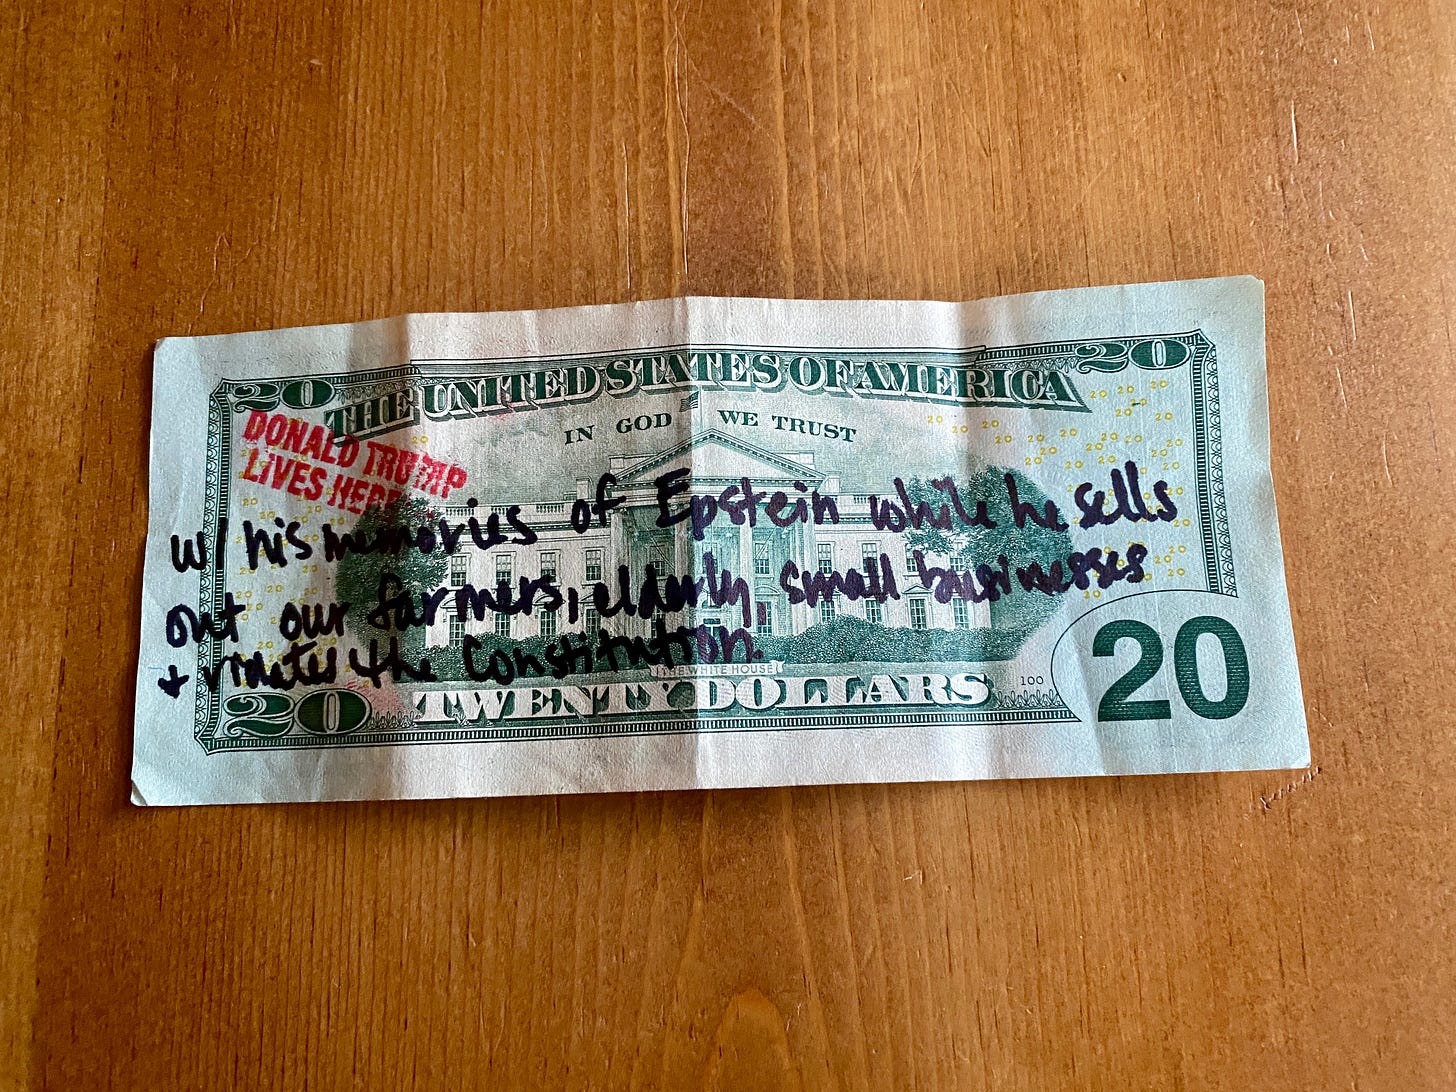 20 THE UNITED STATES OF AMERICA 20
IN GOD WE TRUST
DONALD TRUMP
LIVES HERE
w/ his memories of Epstein while he sells
out our farmers, elderly, small businesses
+ the Constitution.
THE WHITE HOUSE
20 TWENTY DOLLARS
100
20